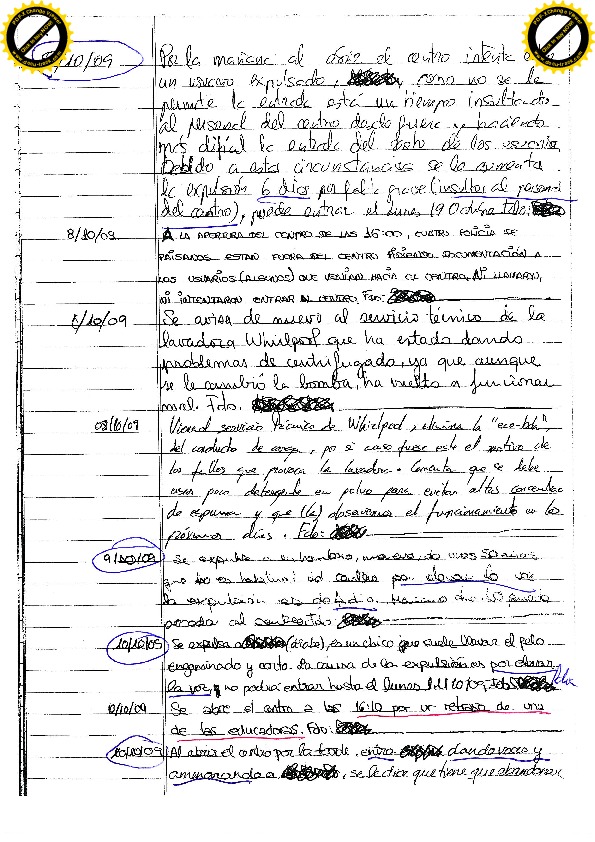 /10/09 Por la mañana al abrir el centro intenta entrar
un usuario expulsado, como no se le
permite la entrada está un tiempo insultando
al personal del centro desde fuera y haciendo
más difícil la entrada del resto de los usuarios
Debido a estas circunstancias se le aumenta
la expulsión 6 días por falta grave (insultar al personal
del centro), puede entrar el lunes 19 Octubre Fdo:
8/10/09 A LA APERTURA DEL CENTRO DE LAS 16:00, CUATRO POLICÍA DE
PAISANOS ESTAN FUERA DEL CENTRO PIDIENDO DOCUMENTACIÓN A
LOS USUARIOS (ALGUNOS) QUE VENIAN HACIA EL CENTRO. NI LLAMARON,
NI INTENTARON ENTRAR AL CENTRO. Fdo:
/10/09 Se avisa de nuevo al servicio técnico de la
lavadora Whirlpool que ha estado dando
problemas de centrifugado, ya que aunque
se le cambió la bomba, ha vuelto a funcionar
mal. Fdo.
08/10/09 Viene el servicio técnico de Whirlpool, elimina la "eco-bola",
del conducto de , por si acaso fuese este el motivo de
los fallos que provoca la lavadora. Comenta que se debe
usar poco detergente en polvo para evitar altas
de espuma y que (le) observemos el funcionamiento en los
próximos días. Fdo:
9/10/09 Se expulsa a un hombre,
que no es habitual del centro por elevar la voz
la expulsión es de 1 día.

10/10/09 Se expulsa a (árabe), es un chico que suele llevar el pelo
engominado y corto. La causa de la expulsión es por elevar
la voz, no podrá entrar hasta el lunes 10/09. Fdo
10/10/09 Se abre el centro a las 16:10 por un retraso de una
de las educadoras. Fdo:
10/10/09 Al abrir el centro por la tarde, entra dando voces y
amenazando a , se le dice que tiene que abandonar